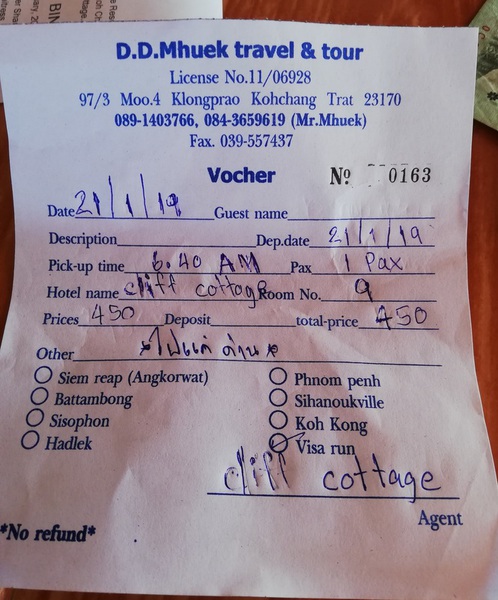 D.D.Mhuek travel & tour
License No.11/06928
97/3 Moo.4 Klongprao Kohchang Trat 23170
089-1403766, 084-3659619 (Mr.Mhuek)
Fax. 039-557437
Vocher Nº 0163
Date 21/1/19 Guest name
Description Dep.date 21/1/19
Pick-up time 6.40 AM Pax 1 Pax
Hotel name cliff cottage Room No. 9
Prices 450 Deposit total-price 450
Other *ไปแค่ ด่าน*
Siem reap (Angkorwat) Phnom penh
Battambong Sihanoukville
Sisophon Koh Kong
Hadlek Visa run
cliff cottage
Agent
*No refund*